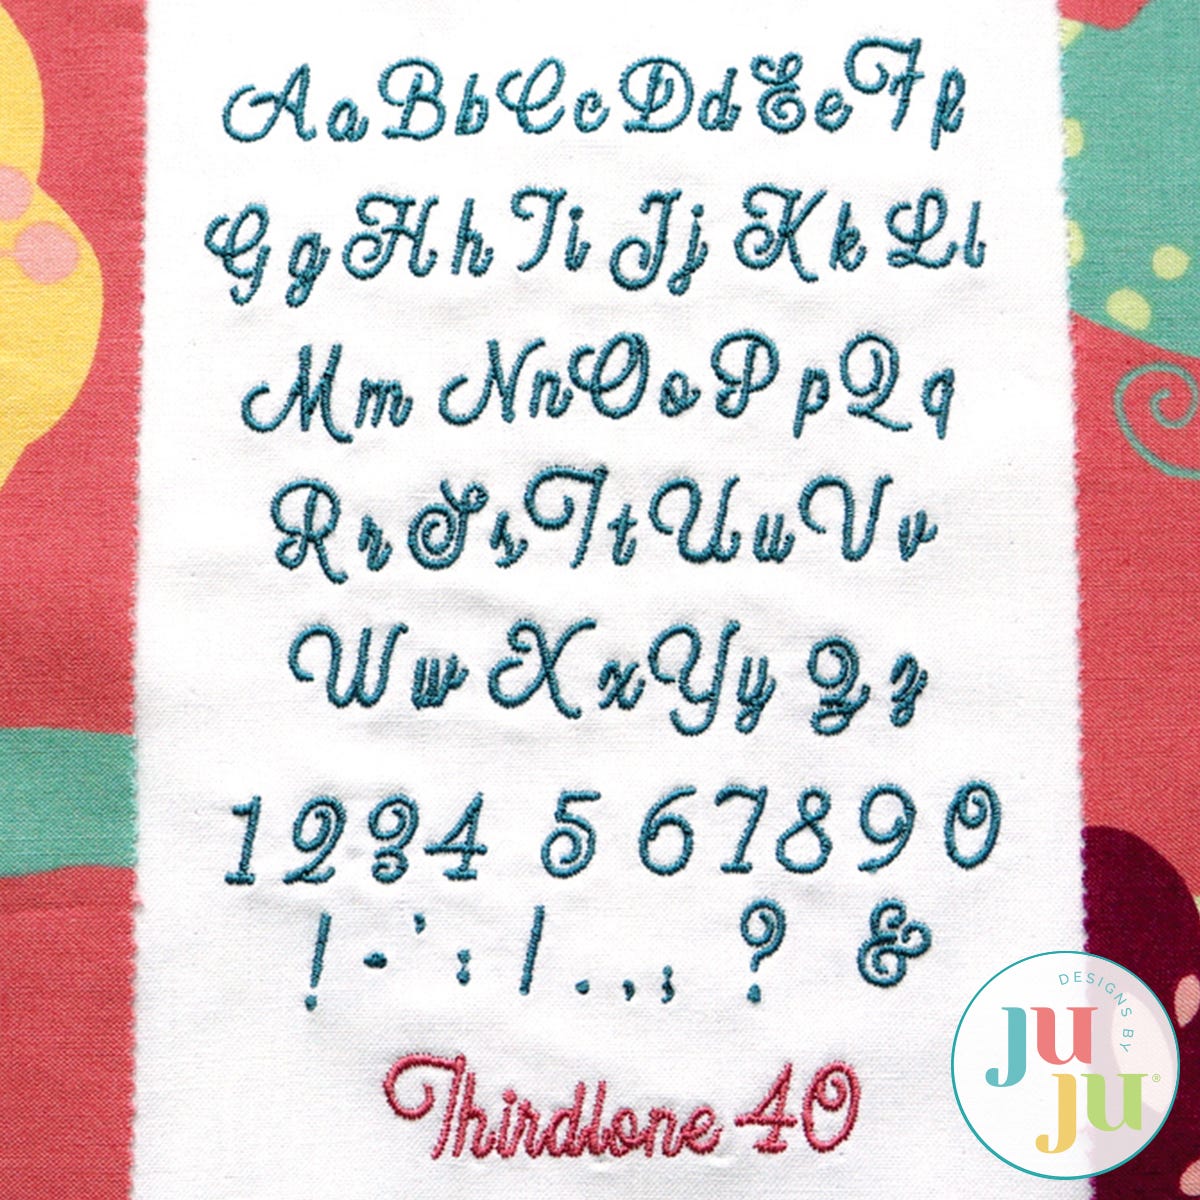 AaBbCcDdEeFf
GgHhIiJjKkLl
MmNnOoPpQq
RrSsTtUuVv
WwXxYyZz
1234567890
!-':/.,;?&
Thirdlone 40
DESIGNS BY
JUJU®